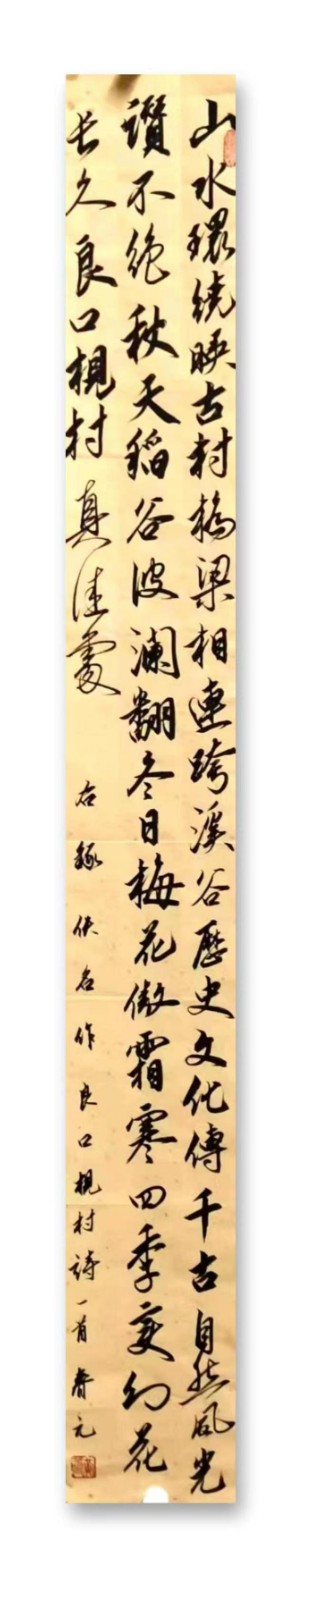 山水環繞映古村橋梁相連跨溪谷歷史文化傳千古自然風光
讚不絶秋天稻谷波瀾翻冬日梅花傲霜寒四季變幻花
長久良口梘村真佳處
右録佚名作良口梘村詩一首 睿元